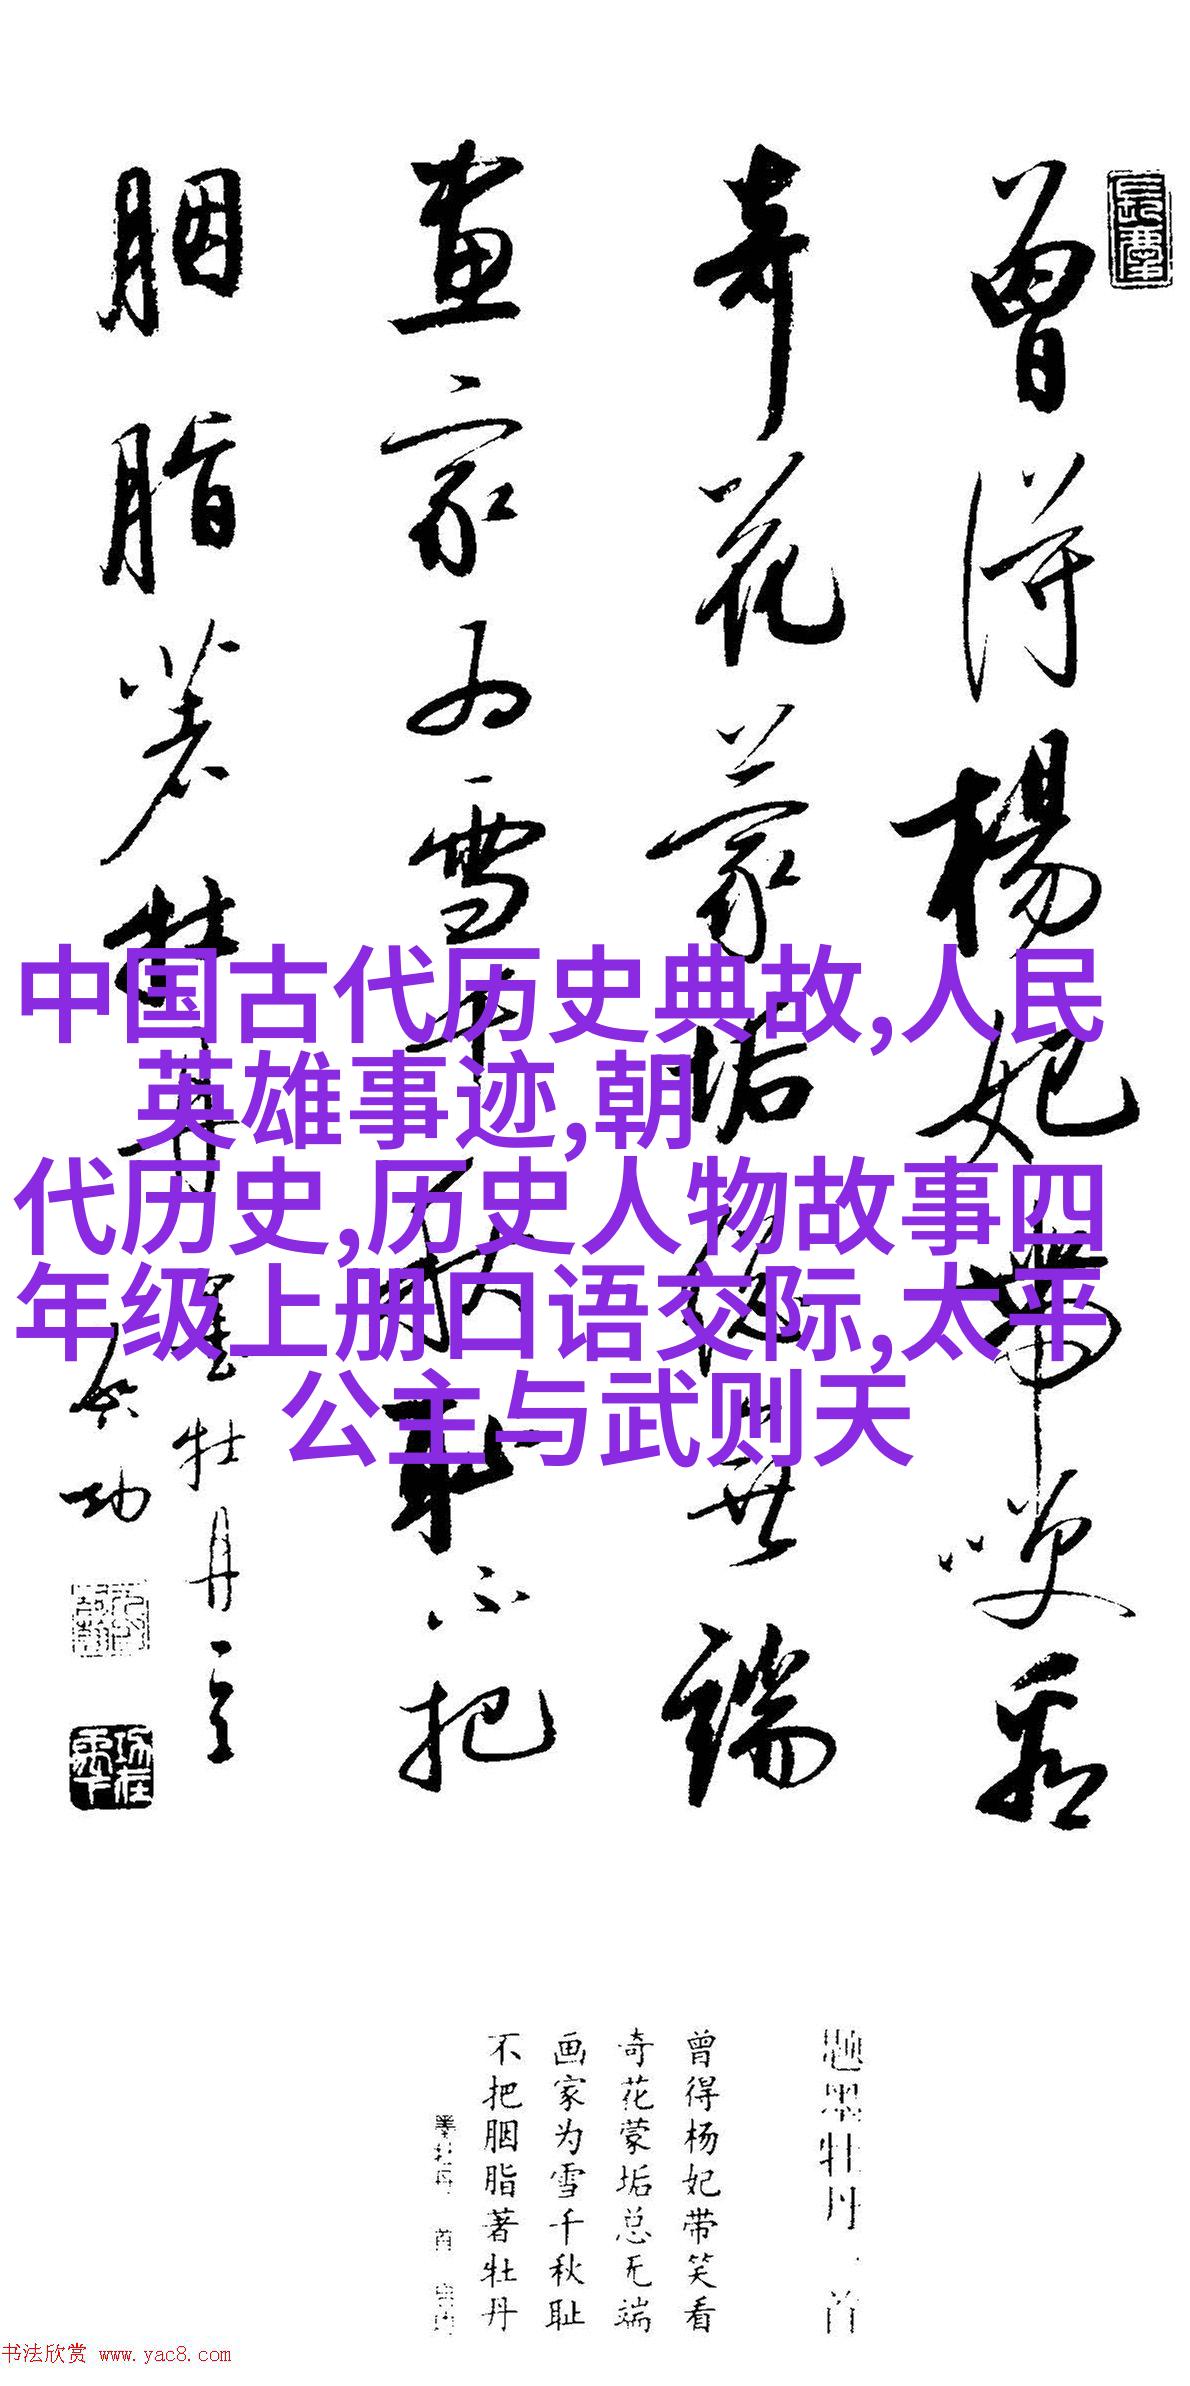 曾得楊妃帶笑看
奇花蒙垢總無端
畫家為雪千秋恥不把
胭脂著牡丹
墨牡丹一首
啟功
中国古代历史典故,人民
英雄事迹,朝
代历史,历史人物故事四
年级上册口语交际,太平
公主与武则天
题墨牡丹一首
曾得杨妃带笑看
奇花蒙垢总无端
画家为雪千秋耻
不把胭脂著牡丹
书法欣赏 www.yac8.com